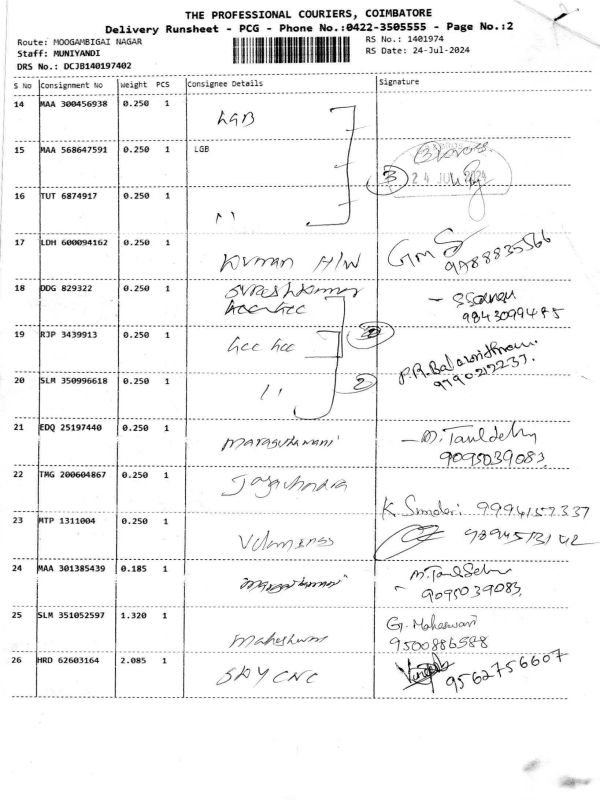 THE PROFESSIONAL COURIERS, COIMBATORE
Delivery Runsheet - PCG - Phone No.:0422-3505555 - Page No.:2
Route: MOOGAMBIGAI NAGAR
RS No.: 1401974
Staff: MUNIYANDI
RS Date: 24-Jul-2024
DRS No.: DCJB140197402
S No Consignment No Weight PCS Consignee Details Signature
14 MAA 300456938 0.250 1 LGB
15 MAA 568647591 0.250 1 LGB
3 24 JUL 2024
16 TUT 6874917 0.250 1 "
17 LDH 600094162 0.250 1 Kumar H/W GMS
18 DDG 829322 0.250 1 Sureshkumar
9843099485
19 RJP 3439913 0.250 1 hcc hcc
P.R.Balakrishnan
9790212237.
20 SLM 350996618 0.250 1 " 2
21 EDQ 25197440 0.250 1
9095039083
22 TMG 200604867 0.250 1
K Sundari 9994157337
23 MTP 1311004 0.250 1
9894573142
24 MAA 301385439 0.185 1
9095039083
25 SLM 351052597 1.320 1 Maheshwari G. Maheswari
9500886588
26 HRD 62603164 2.085 1 SKY CNC 9562756607